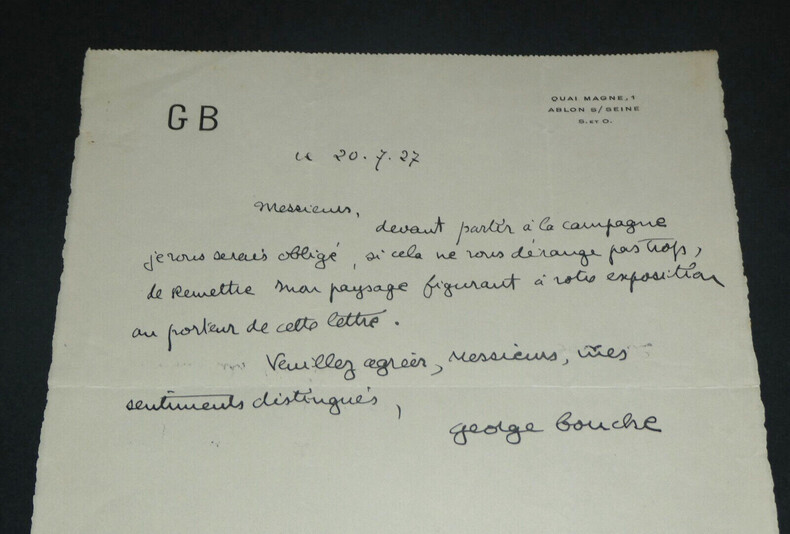 GB
QUAI MAGNE, 1
ABLON S/ SEINE
S. ET O.
le 20.7.27
Messieurs,
devant partir à la campagne
je vous serais obligé, si cela ne vous dérange pas trop,
de remettre mon paysage figurant à votre exposition
au porteur de cette lettre.
Veuillez agréer, Messieurs, mes
sentiments distingués,
george bouche